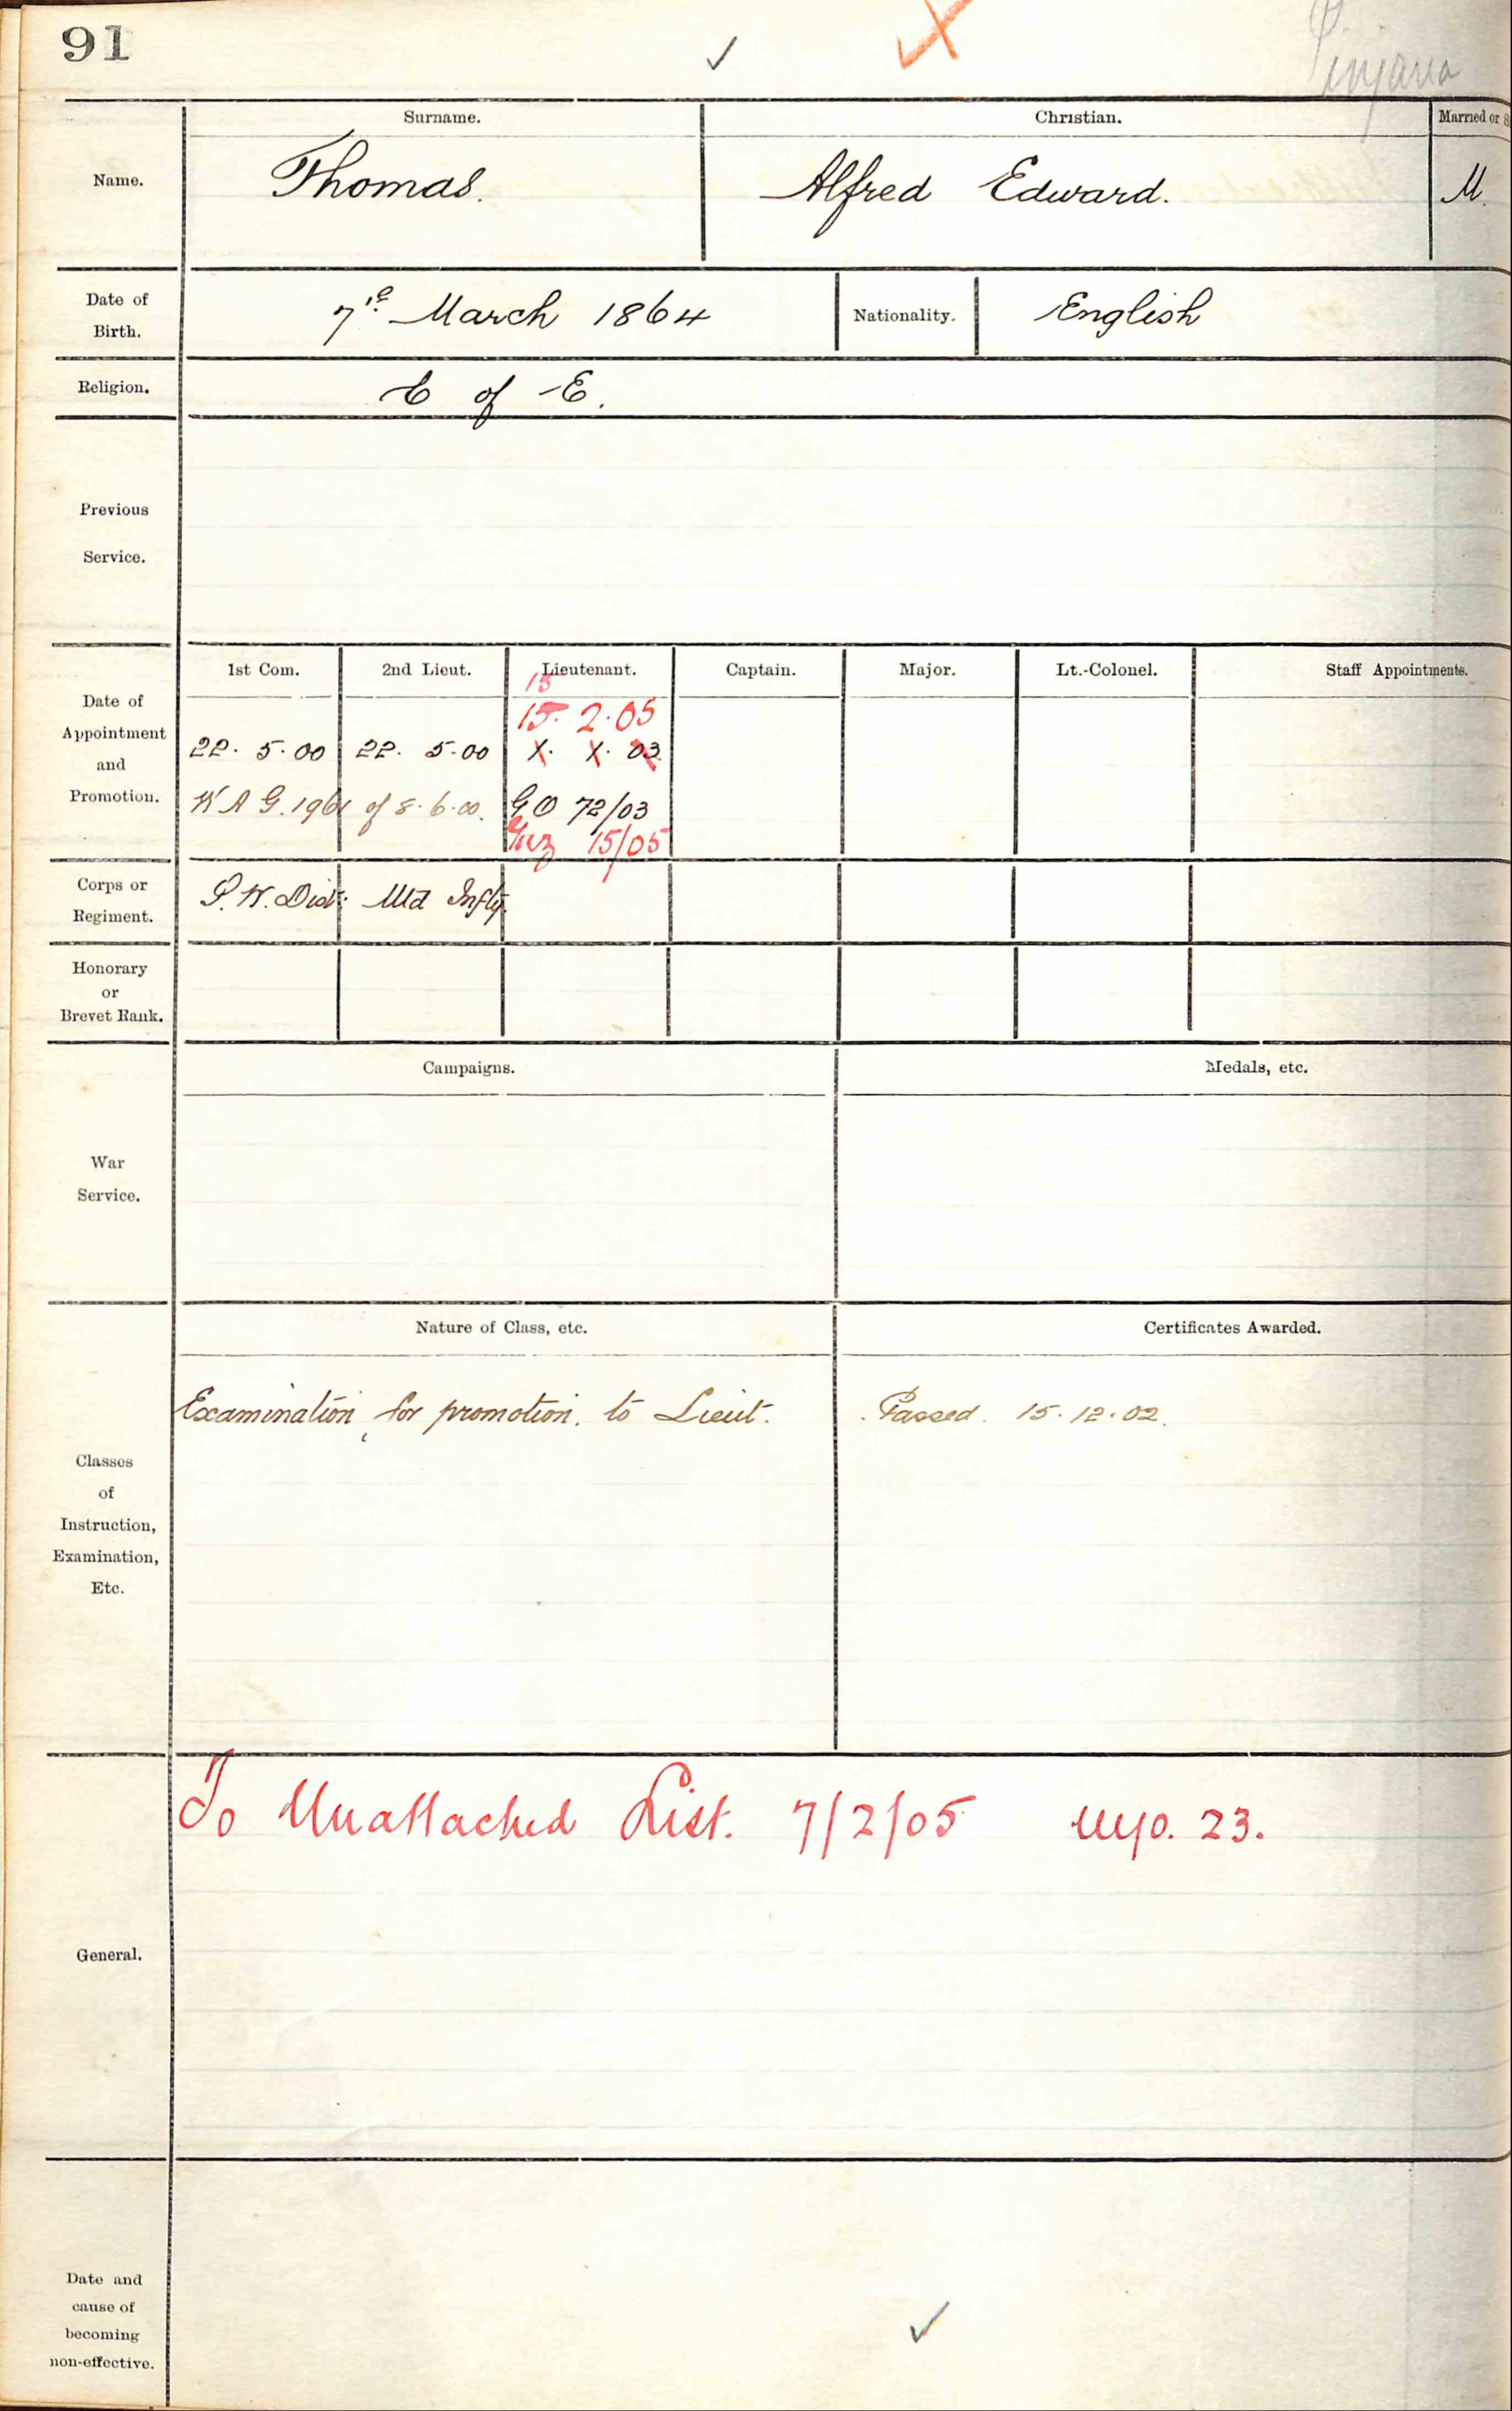 91
Pinjarra
Surname. Christian. Married or S
Name. Thomas. Alfred Edward. M.
Date of Birth. 7th March 1864 Nationality. English
Religion. C of E.
Previous Service.
1st Com. 2nd Lieut. Lieutenant. Captain. Major. Lt.-Colonel. Staff Appointments.
15
15. 2. 05
Date of Appointment and Promotion. 22. 5. 00 22. 5. 00 X. X. 03
W A G. 1961 of 8. 6. 00. G O 72/03
Gaz 15/05
Corps or Regiment. S. W. Dist: Mtd Infty.
Honorary or Brevet Rank.
Campaigns. Medals, etc.
War Service.
Nature of Class, etc. Certificates Awarded.
Examination for promotion. to Lieut. Passed. 15. 12. 02.
Classes of Instruction, Examination, Etc.
To Unattached List. 7/2/05 23.
General.
Date and cause of becoming non-effective.